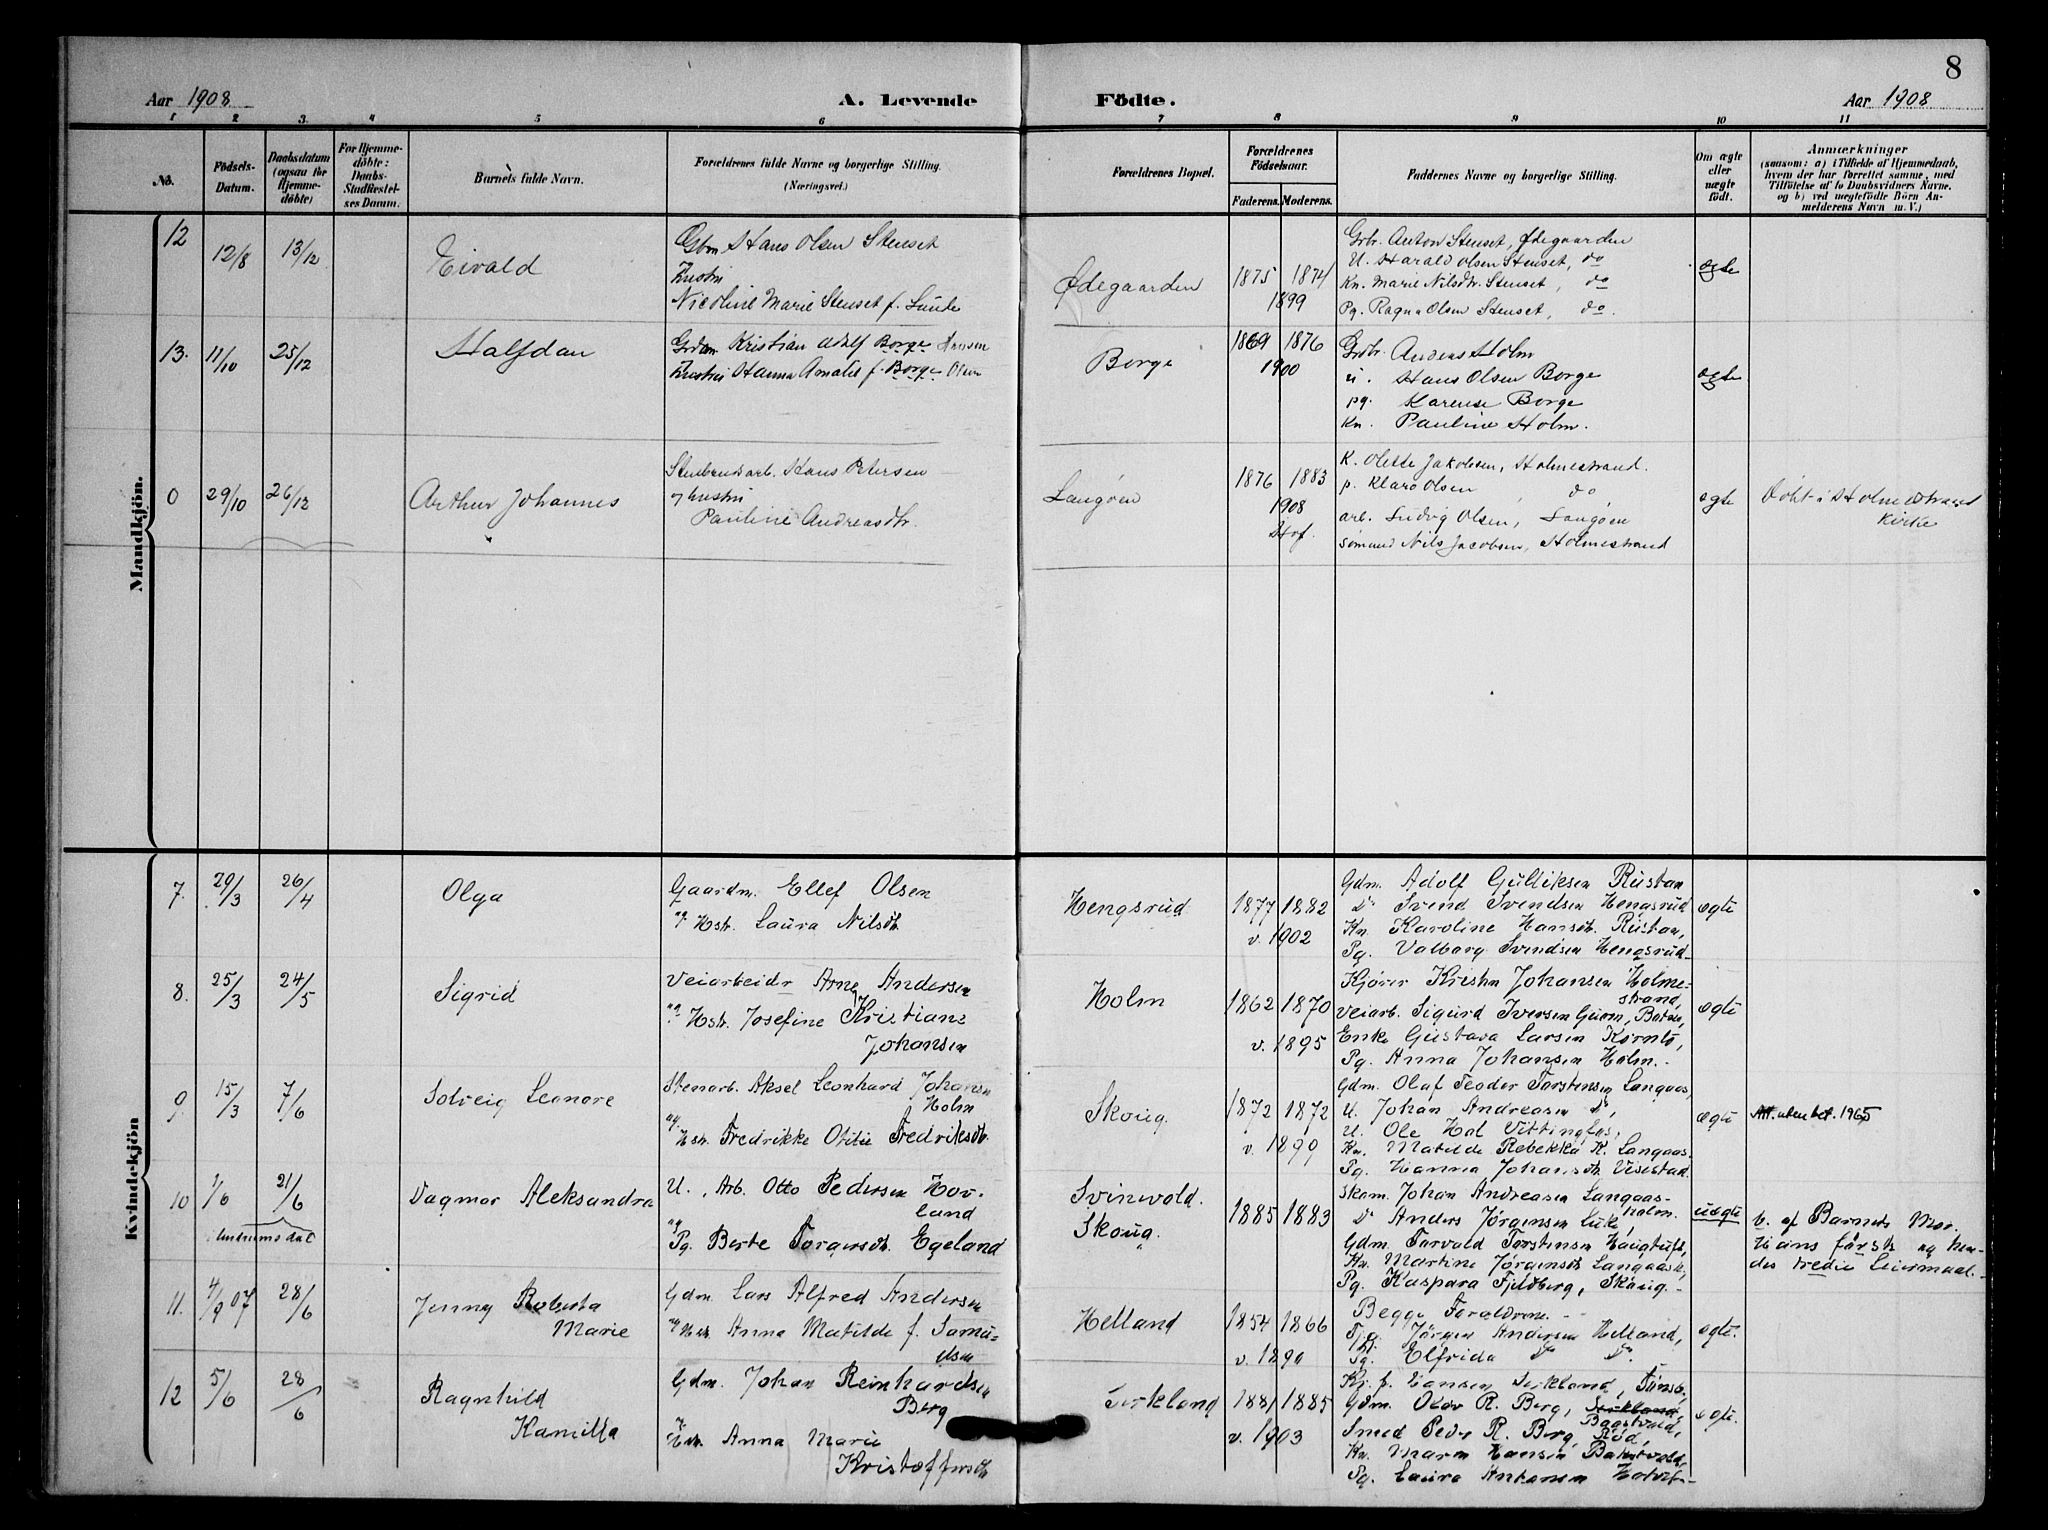 8
Aar 1908 A. Levende Födte. Aar 1908
1 2 3. 4 5 6 7 8 9 10 11
No. Födsels-Datum. Daabsdatum (ogsaa for Hjemme-döbte) For Hjemme-döbte: Daabs-Stadfæstel-ses Datum. Barnets fulde Navn. Forældrenes fulde Navne og borgerlige Stilling. (Næringsvei.) Forældrenes Bopæl. Forældrenes Födselsaar. Faderens. Moderens. Faddernes Navne og borgerlige Stilling. Om ægte eller uægte födt. Anmærkninger (saasom: a) i Tilfælde af Hjemmedaab, hvem der har forrettet samme, med Tilföielse af to Daabsvidners Navne, og b) ved uægtefödte Börn An-melderens Navn m. V.)
Mandkjön.
12 12/8 13/12 Eivald Gbm Hans Olsen Stenset
Hustru
Nicoline Marie Stenset f. Lunde
Ødegaarden 1875 1874
1899
Gbr. Anton Stenset, Ødegaarden
U. Harald Olsen Stenset, do
Kn. Marie Nilsdtr. Stenset, do
Pg. Ragna Olsen Stenset, do.
ægte
13. 11/10 25/12 Halfdan Kristian Adolf Borge
Hustru Hanna Amalie f. Borge Olsen
Borge 1869 1876
1900
Gbr. Anders Holm
u. Hans Olsen Borge
pg. Karense Borge
Kn. Pauline Holm.
ægte
0 29/10 26/12 Arthur Johannes Stenbrudsarb. Hans Petersen
og hustru
Pauline Andreasdtr.
Langøen 1876 1883
1908
Hof.
K. Olette Jakobsen, Holmestrand.
p. Klara Olsen, do
arb. Ludvig Olsen, Langøen
sömand Nils Jacobsen, Holmestrand
ægte Döbt i Holmestrand
Kirke
Kvindekjön
7. 29/3 26/4 Olga Gaardm. Ellef Olsen
og Hstr. Laura Nilsdtr.
Hengsrud 1877 1882
v. 1902
Gdm. Adolf Gulliksen Rustan
Do Svend Svendsen Hengsrud
Kn. Karoline Hansdt. Rustan,
Pg. Valborg Svendsen Hengsrud.
ægte
8. 25/3 24/5 Sigrid Veiarbeider Arne Andersen
og Hstr. Josefine Kristiane
Johansen
Holm 1862 1870
v. 1895
Kjörer Kristen Johansen Holme-
strand,
Veiarb. Sigurd Iversen
Enke Gustava Larsen
Pg. Anna Johansen Holm.
ægte
9 15/3 7/6 Solveig Leonore Stenarb. Aksel Leonhard Johansen
Holm
og Hstr. Fredrikke Otilie Fredriksdtr.
Skoug. 1872 1872
v. 1899
Gdm. Olaf Teodor Torstensen Langaas,
U. Johan Andreasen Do,
U. Ole Hol Vittingfos,
Kn. Matilde Rebekka K. Langaas
Pg. Hanna Johansdt.
ægte Att. uten bet. 1965
10 1/6 21/6 Dagmar Aleksandra U., Arb. Otto Pedersen Hov-
land
og Pg. Berte Torgersdt. Egeland
Svinevold.
Skoug. 1885 1883
Skom. Johan Andreasen Langaas-
holm.
Do Anders Jørgensen
Gdm. Torvald Torstensen
Kn. Martine Jørgensdt. Langaas
Pg. Kaspara Fjeldberg, Skoug.
uægte af Barnets Mor.
Hans første og hen-
des tredie Leiermaal.
11. 4/9 07 28/6 Jenny Roberta
Marie
Gdm. Lars Alfred Andersen
og Hstr. Anna Matilde f. Samu-
elsen
Helland 1854 1866
v. 1890
Begge Forældrene.
Jørgen Andersen Helland,
Pg. Elfrida Do Do.
ægte.
12 5/6 28/6 Ragnhild
Kamilla
Gdm. Johan Reinhardsen
Berg
Hstr. Anna Marie
Kristoffersdt.
1881 1885
v. 1903
Gdm. Olav R. Berg,
Smed Peder R. Berg, Röd,
Kn. Maren Hansen
Pg. Laura Antonsen
ægte.